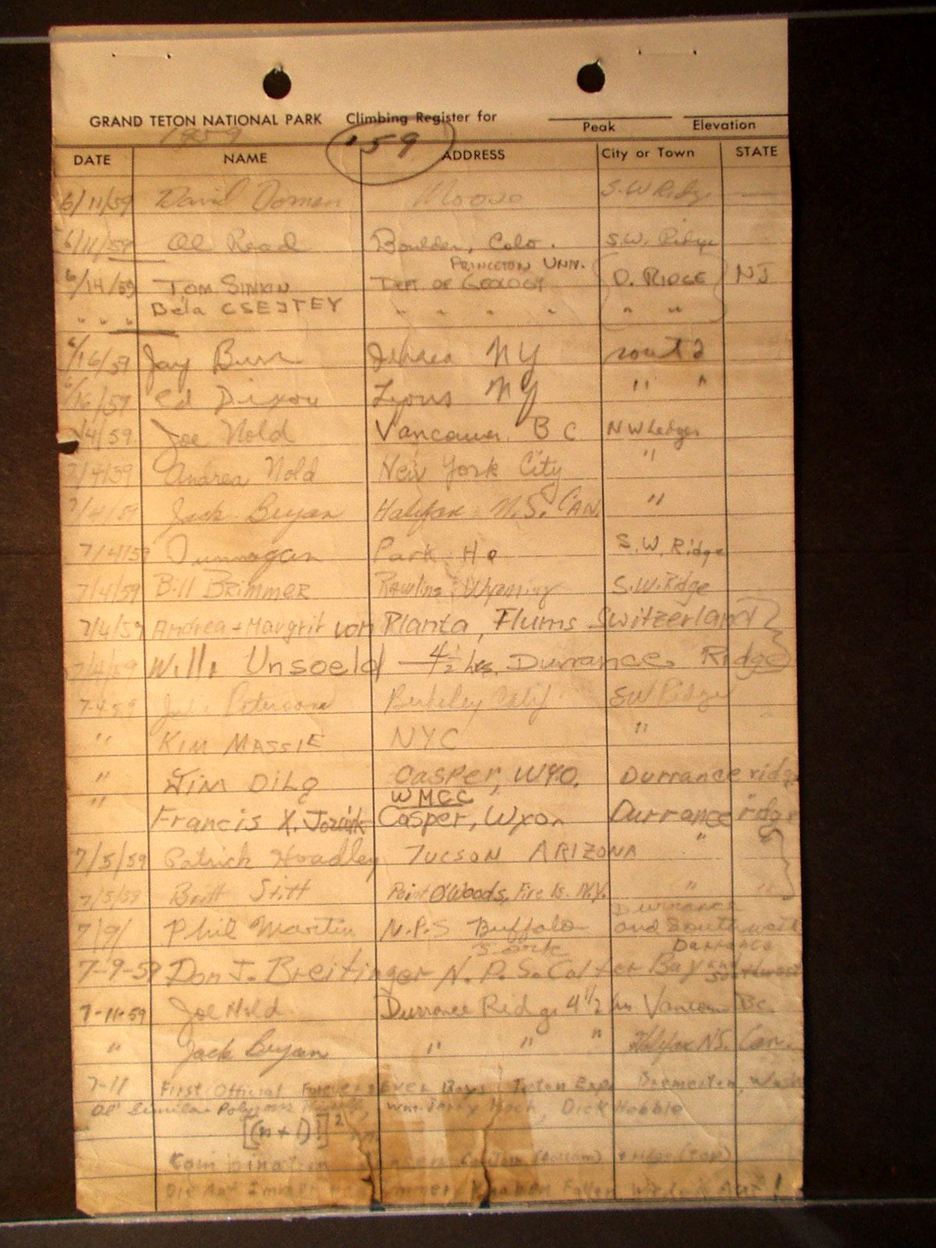 GRAND TETON NATIONAL PARK Climbing Register for
Peak Elevation
1959 '59
DATE NAME ADDRESS City or Town STATE
6/11/59 David Dornan Moose S.W Ridge
6/11/59 Al Read Boulder, Colo. S.W. Ridge
PRINCETON UNIV.
6/14/59 TOM SIMKIN DEPT. OF GEOLOGY D. RIDGE NJ
" " " Béla CSEJTEY " " " " " "
6/16/59 Jay Burr Ithaca NY
6/16/59 Ed Dixon Lyons NY " "
7/4/59 Joe Nold Vancouver B C NW Ledges
7/4/59 Andrea Nold New York City "
7/4/59 Jack Bryan Halifax N.S. CAN. "
7/4/59 Dunnagan Park Hq S.W. Ridge
7/4/59 Bill BRIMMER Rawlins Wyoming S.W. Ridge
7/4/59 Andrea + Margrit von Planta, Flums Switzerland
7/4/59 Willi Unsoeld - 4½ hrs. Durrance Ridge
7-4-59 Peterson Berkeley Calif SW Ridge
" KIM MASSIE NYC "
" JIM DILG CASPER, WYO. Durrance ridge
WMCC
" Francis X. Casper, Wyo. Durrance ridge
7/5/59 Patrick Hoadley TUCSON ARIZONA "
7/5/59 Britt Stitt Point O'Woods, Fire Is. N.Y. " "
Durrance
7/9/ Phil Martin N.P.S Buffalo and Southwest
Durrance
7-9-59 Don J. Breitinger N.P.S. Colter Bay and Southwest
7-11-59 Joe Nold Durrance Ridge 4 1/2 hrs Vancouver BC.
" Jack Bryan " " " Halifax N.S. Can.
7-11 First Official Boys Teton Exp Bremerton, Wash
Al Polygons Dick Hebble
[(n+1)!]²
Combination (bottom) + ridge (top)
Die Immer Fallen Wieder Auf!